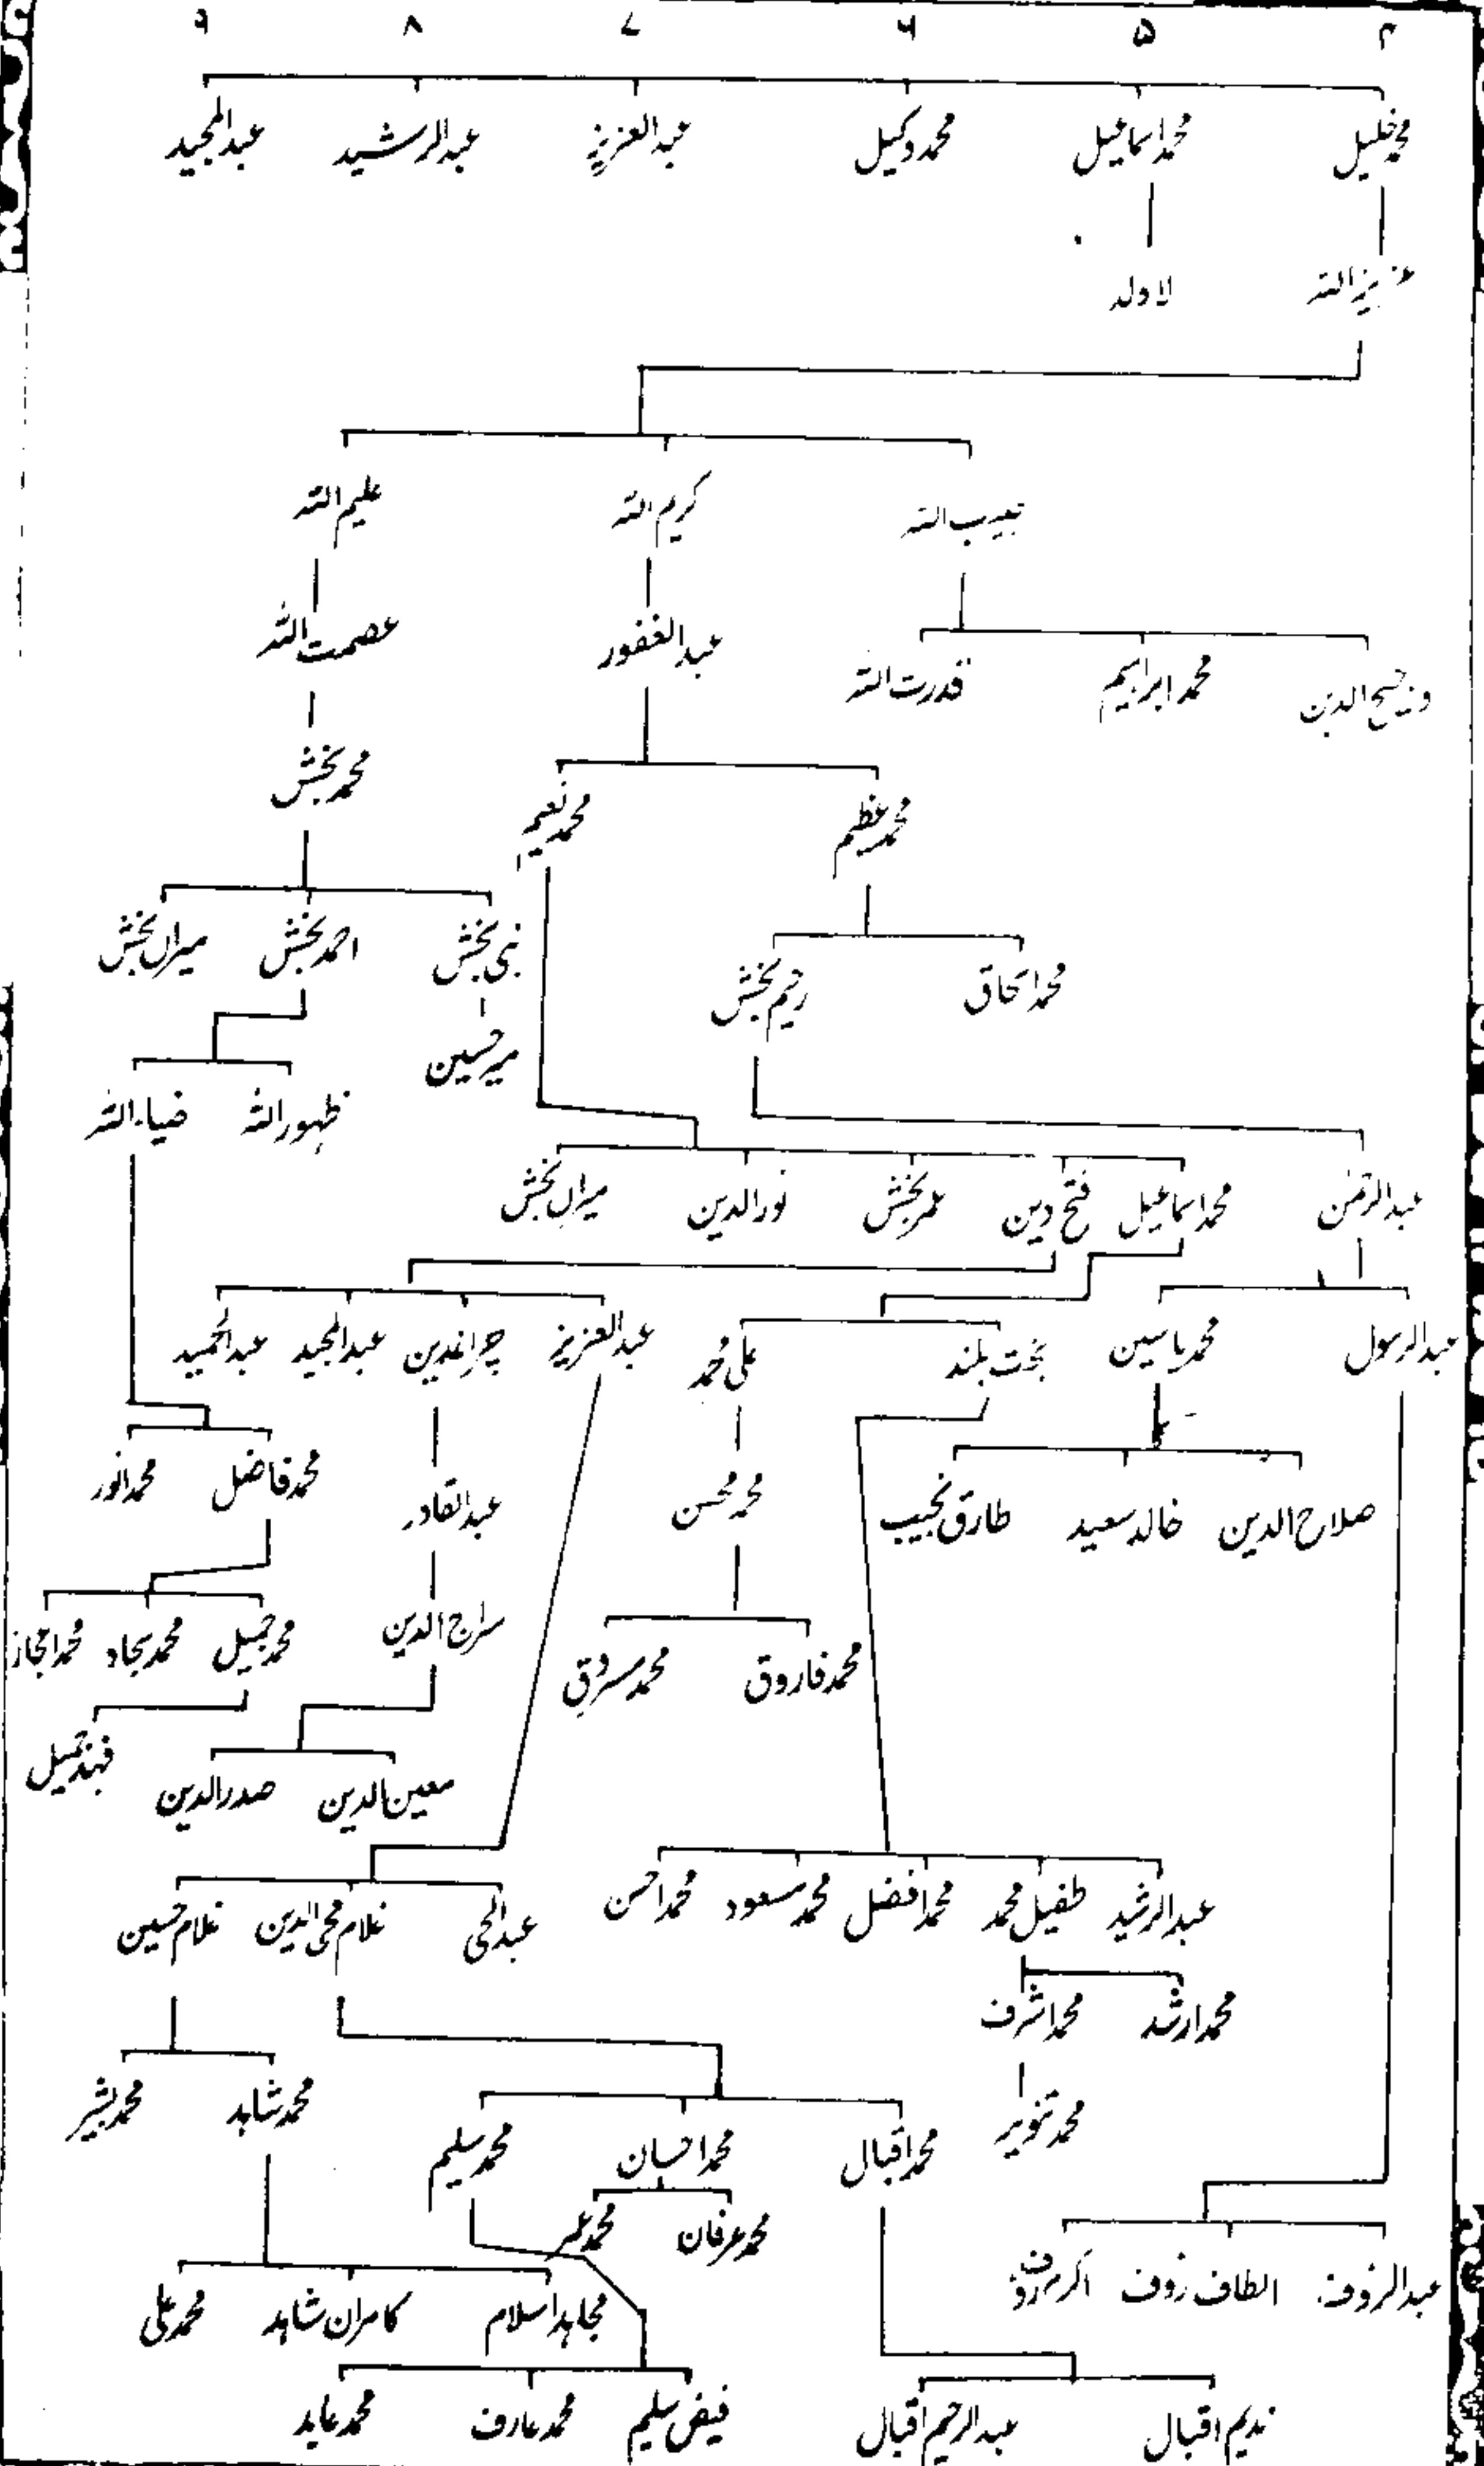 ۴ ۵ ۶ ۷ ۸ ۹
محمد خلیل محمد اسماعیل محمد وکیل عبدالعزیز عبدالرشید عبدالمجید
عزیز اللہ لاولد
حبیب اللہ کرم اللہ علیم اللہ
عبدالغفور عصمت اللہ
فصیح الدین محمد ابراہیم قدرت اللہ
محمد بخش
محمد عظیم محمد نعیم
نبی بخش احمد بخش میراں بخش
محمد اسحاق رحیم بخش
میر حسین
ظہور اللہ ضیاء اللہ
عبدالرحمٰن محمد اسماعیل فتح دین عمر بخش نورالدین میراں بخش
عبدالرسول محمد یاسین بخت بلند علی محمد عبدالعزیز چراغدین عبدالمجید عبدالحمید
محمد فاضل محمد انور
صلاح الدین خالد سعید طارق نجیب محمد محسن عبدالقادر
محمد جمیل محمد سجاد محمد اعجاز
سراج الدین
محمد فاروق محمد مسروق
فہد جمیل
معین الدین صدرالدین
عبدالرشید طفیل محمد محمد افضل محمد مسعود محمد احسن عبدالحی غلام محی الدین غلام حسین
محمد ارشد محمد اشرف
محمد شاہد محمد بشیر
محمد تنویر
محمد اقبال محمد احسان محمد سلیم
محمد عرفان محمد عمر
عبدالرؤف الطاف رؤف اکرم رؤف
مجاہد اسلام کامران شاہد محمد علی
ندیم اقبال عبدالرحیم اقبال فیض سلیم محمد عارف محمد عابد